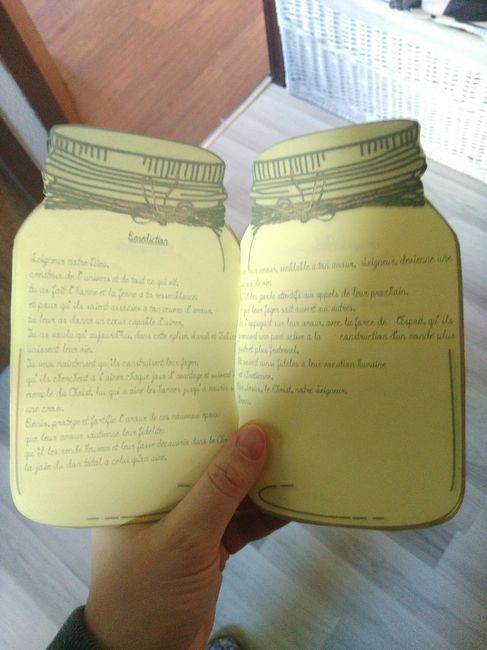 Bénédiction
Seigneur notre Dieu,
créateur de l'univers et de tout ce qui vit,
tu as fait l'homme et la femme à ta ressemblance
et pour qu'ils soient associés à ton œuvre d'amour,
tu leur as donné un cœur capable d'aimer.
Tu as voulu qu'aujourd'hui, dans cette église, et
unissent leur vie.
Tu veux maintenant qu'ils construisent leur foyer,
qu'ils cherchent à s'aimer chaque jour d'avantage et suivent
exemple du Christ, lui qui a aimé les hommes jusqu'à mourir
une croix.
Bénis, protège et fortifie l'amour de ces nouveaux époux
que leur amour soutienne leur fidélité
qu'il les rende heureux et leur fasse découvrir dans le
la joie du don total à celui qu'on aime.
leur amour, semblable à ton amour, Seigneur, devienne une
de vie.
les garde attentifs aux appels de leur prochain,
que leur foyer soit ouvert aux autres.
s'appuyant sur leur amour, avec la force de l'Esprit, qu'ils
une part active à la construction d'un monde plus
et plus fraternel,
soient fidèles à leur vocation humaine
et chrétienne.
Jésus, le Christ, notre Seigneur.